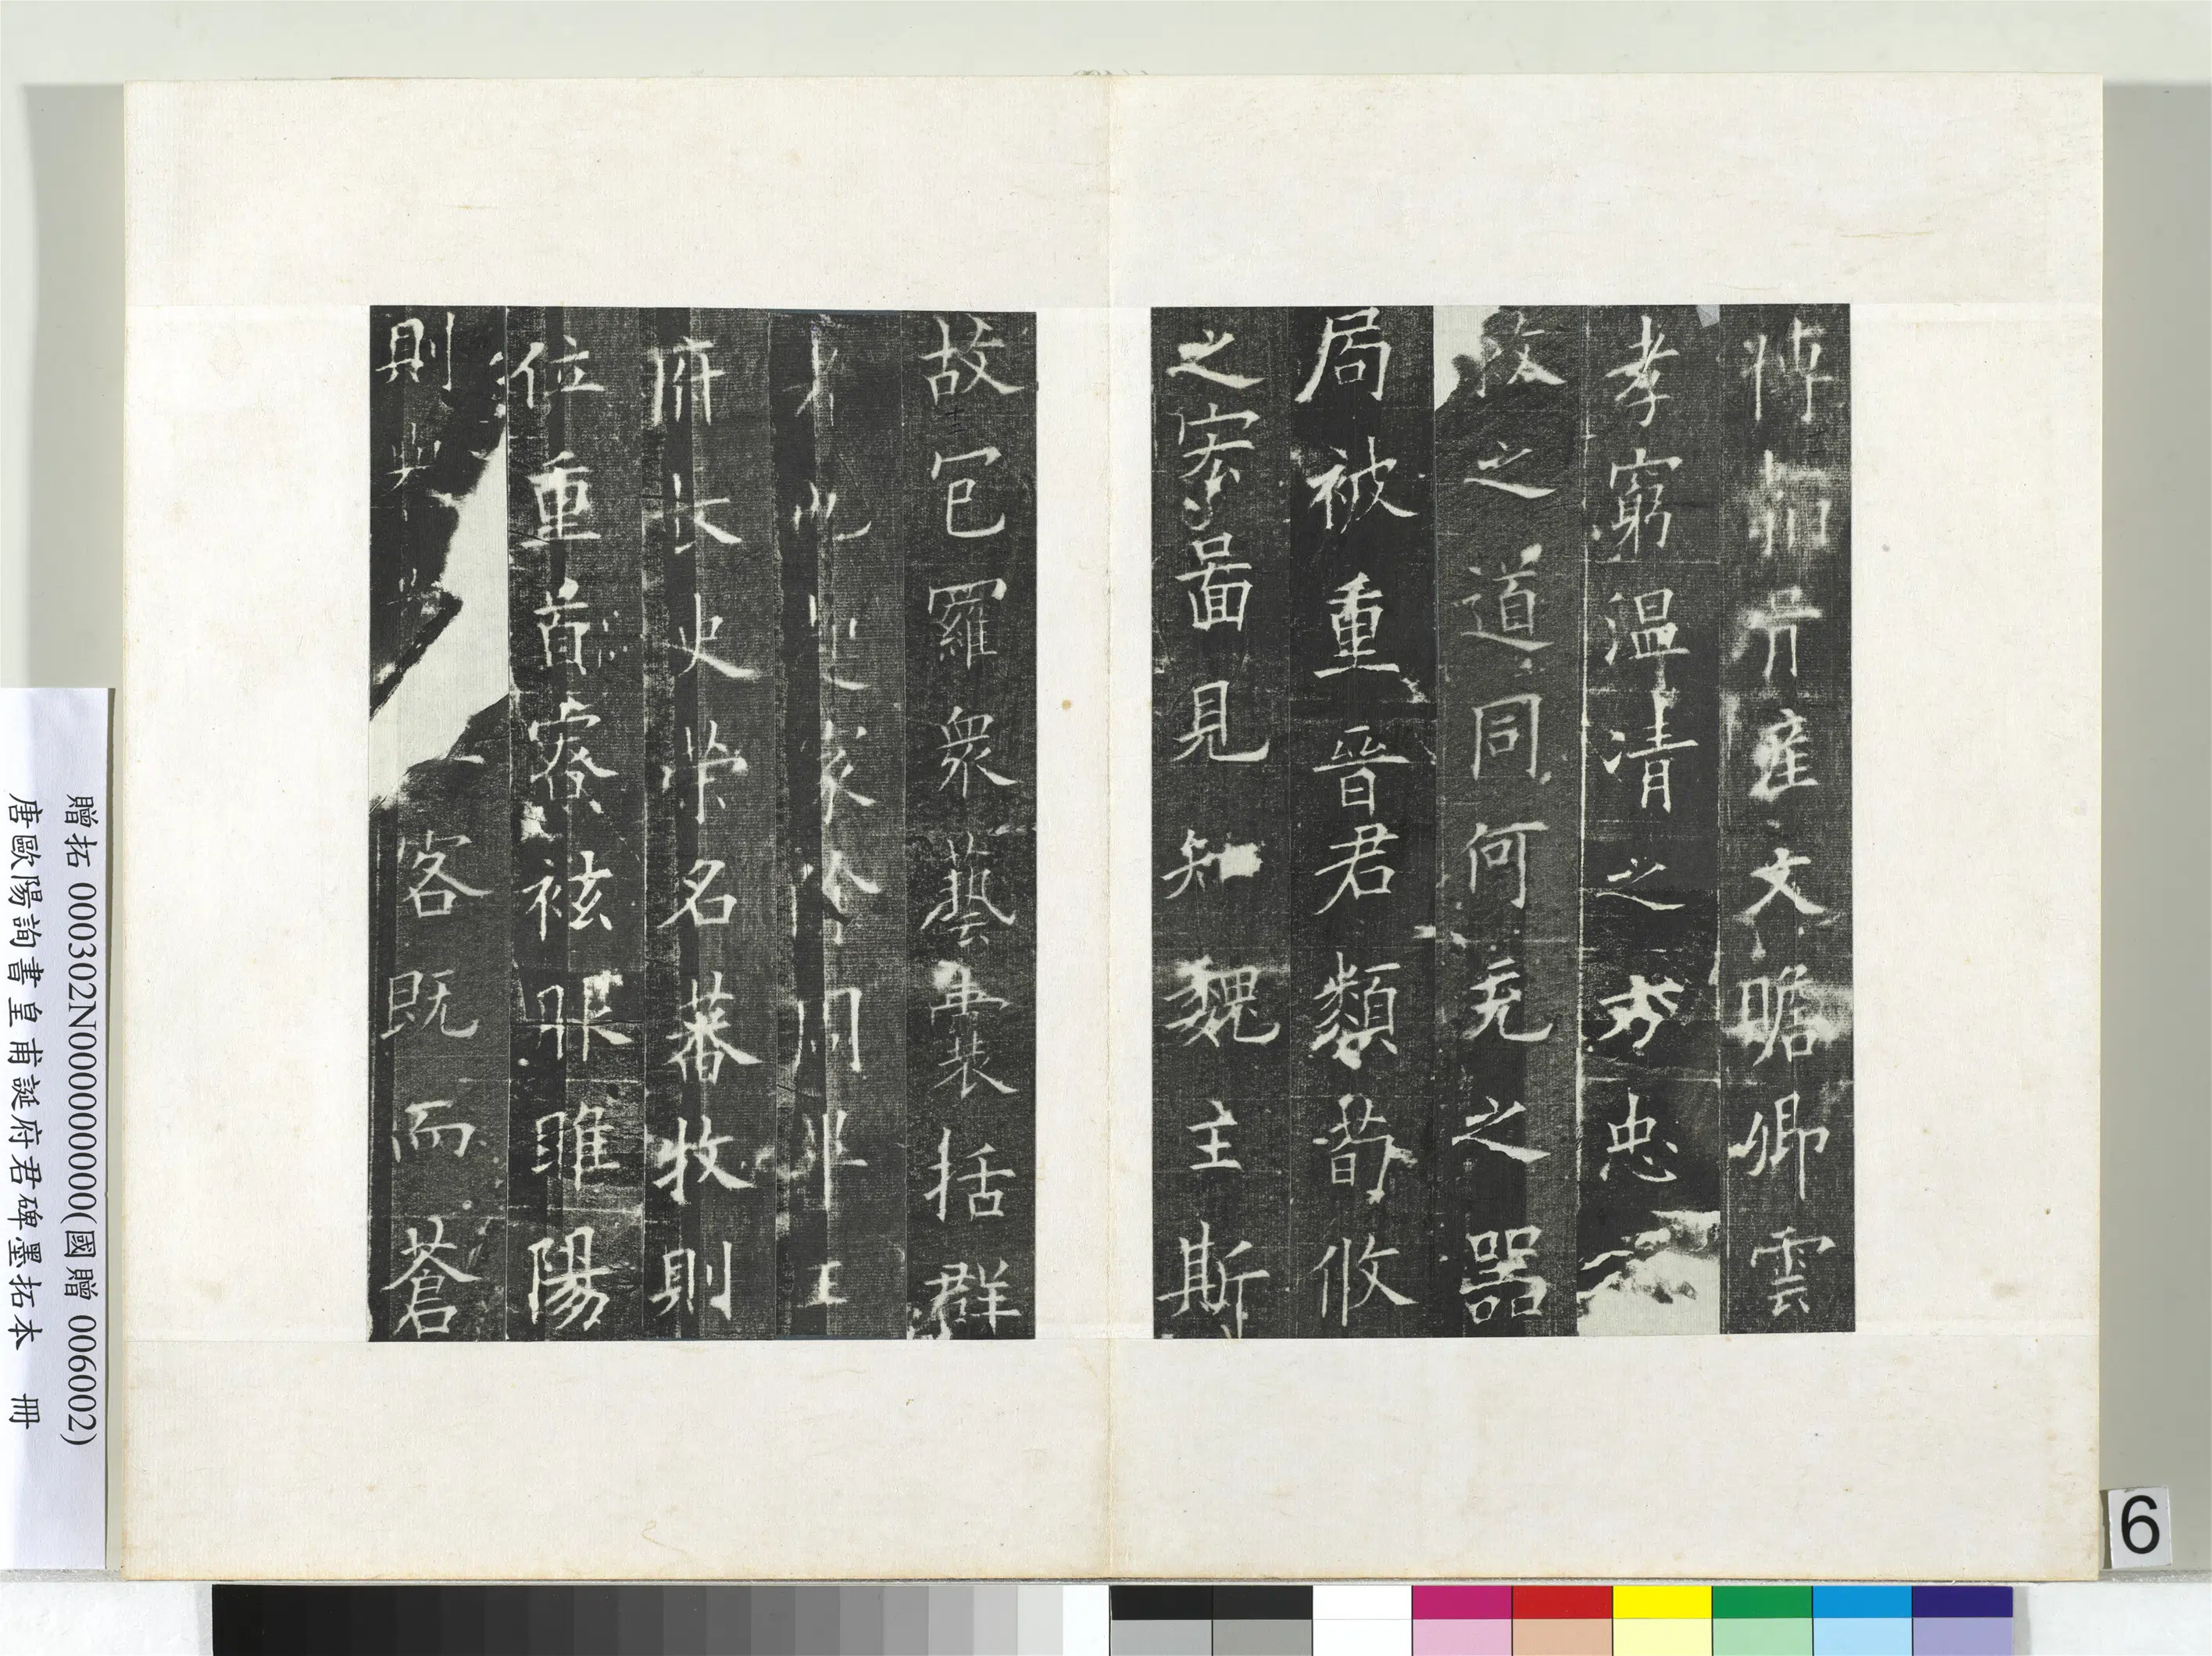 産文瞻卿雲
孝窮温清之方忠
之道同何充之器
局被重晉君類荀攸
之宏啚見知魏主斯
故包羅衆藝囊括群
府長史榮名蕃牧則
位重首寮袨服睢陽
則客既而蒼
贈拓 000302N000000000(國贈 006002)
唐歐陽詢書皇甫誕府君碑墨拓本 冊
6